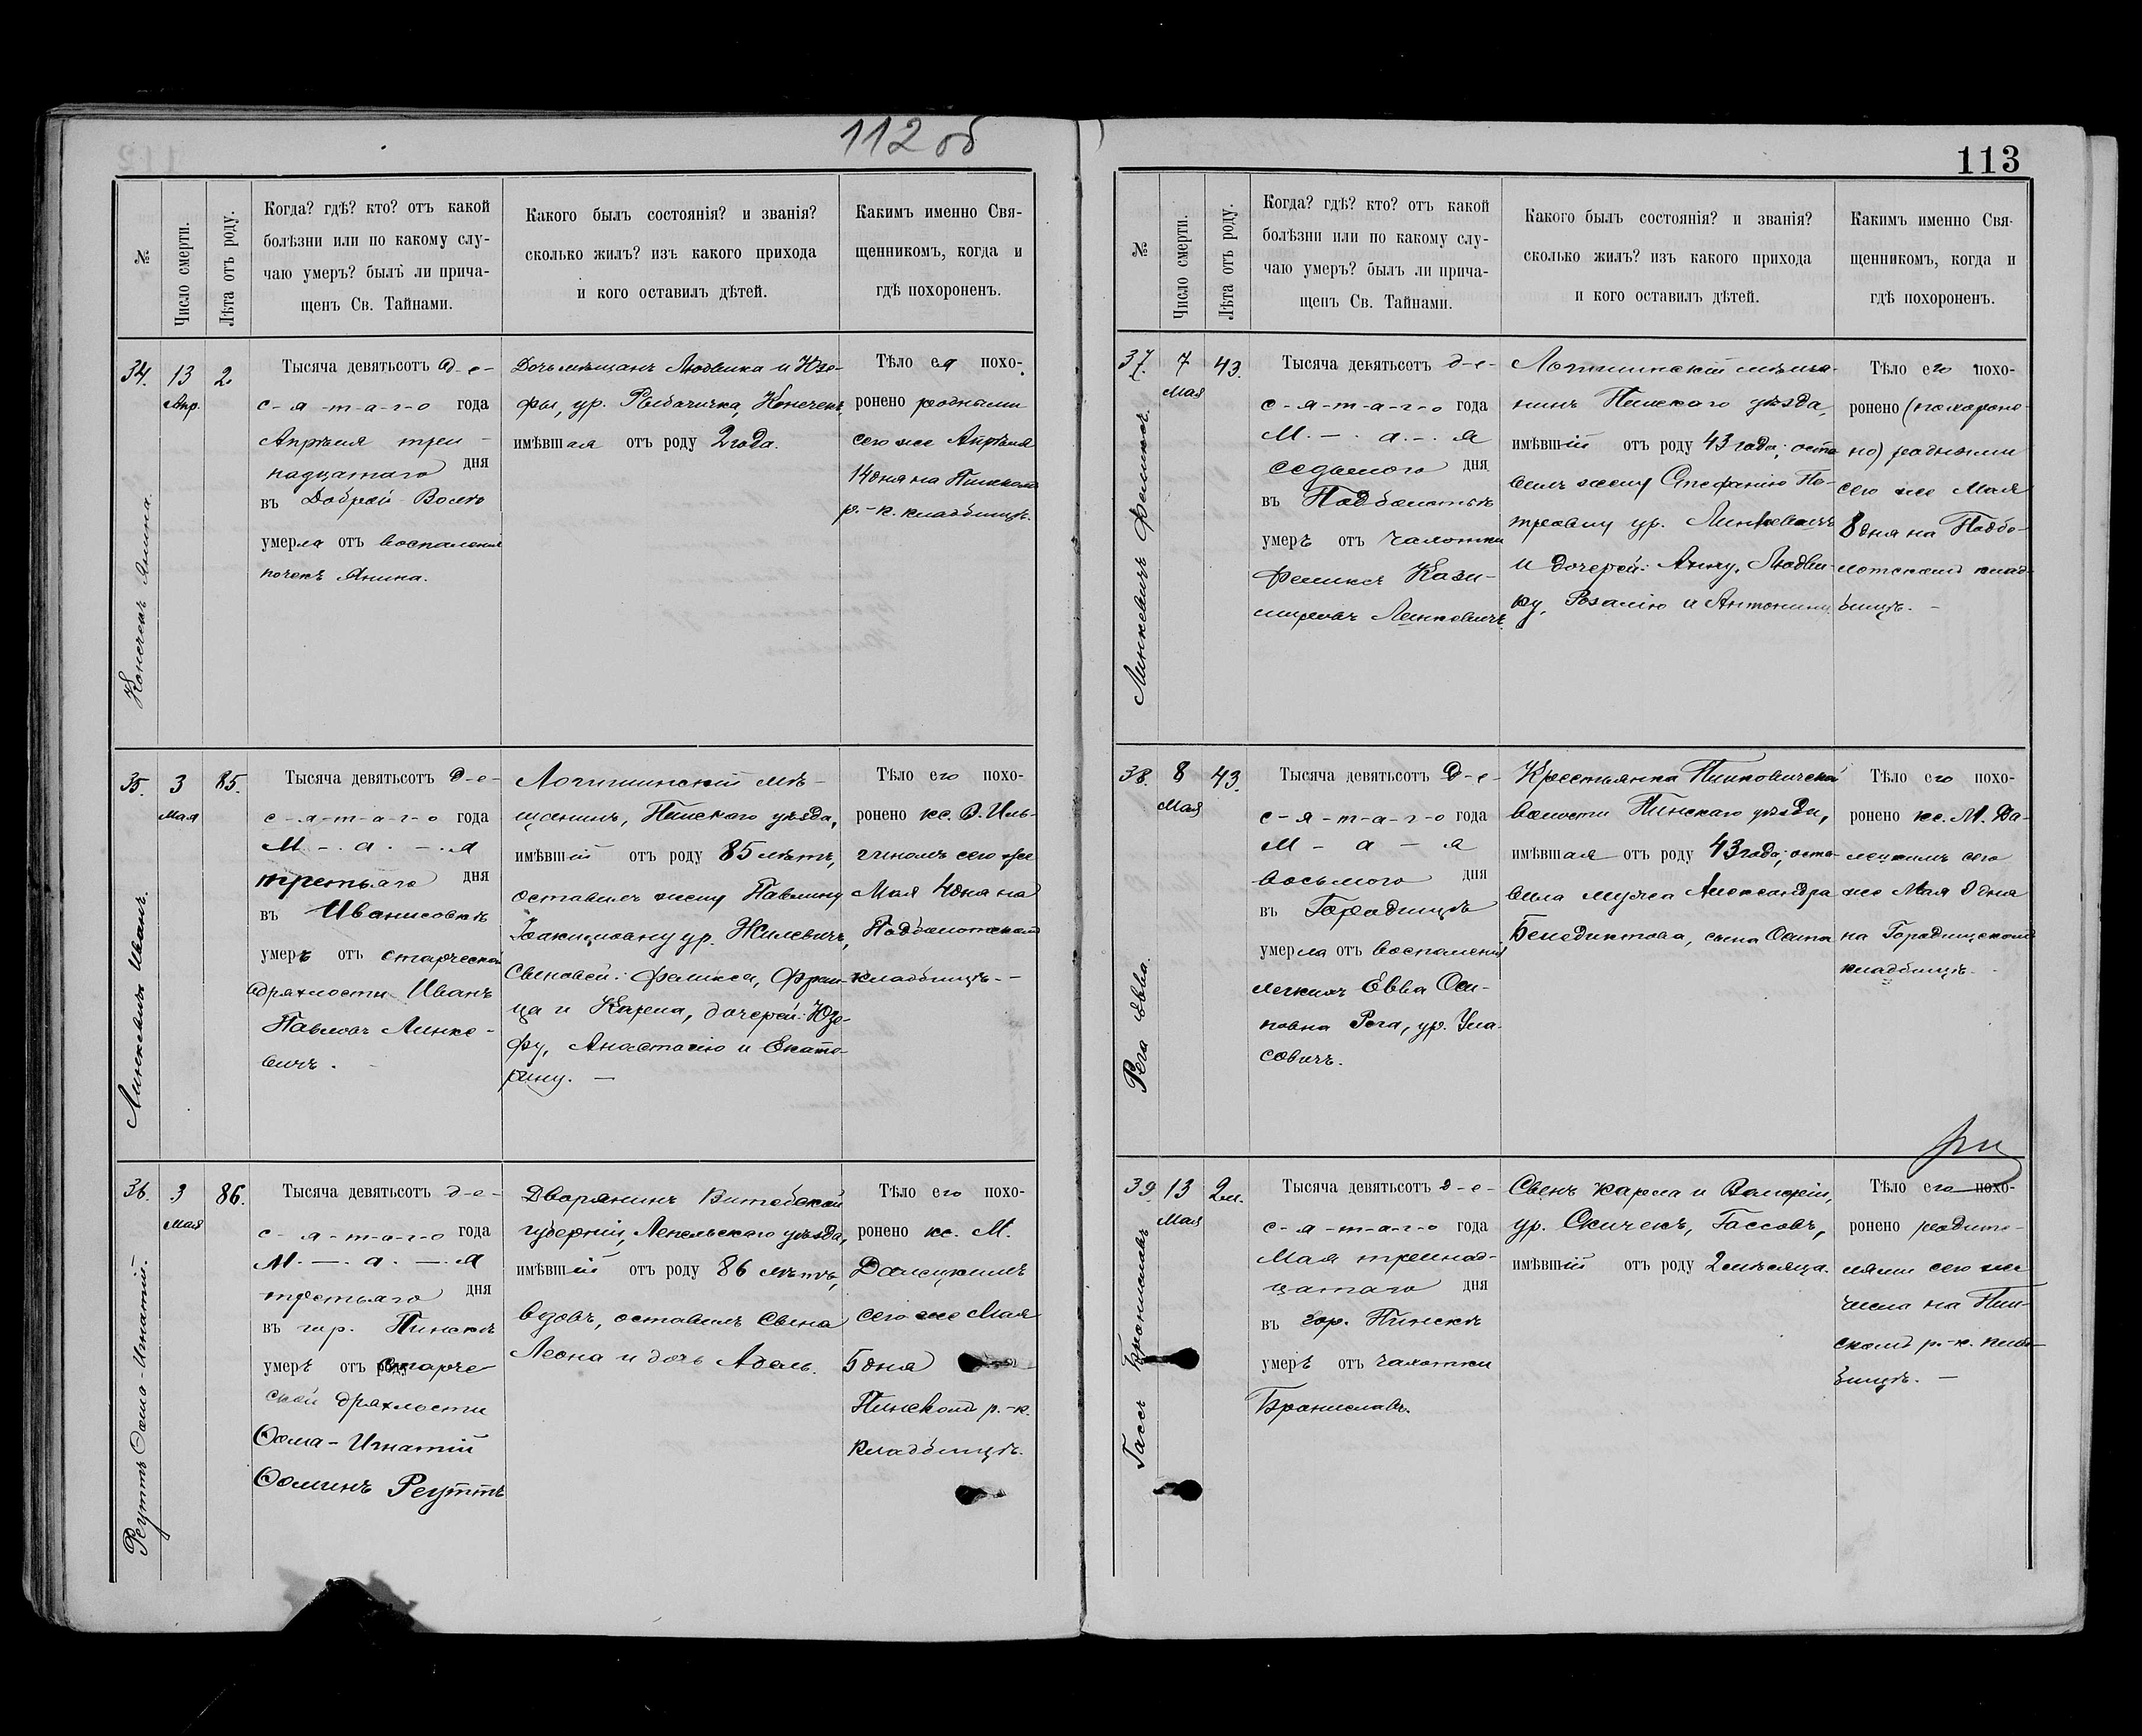 112 об
№
Число смерти.
Лѣта отъ роду.
Когда? гдѣ? кто? отъ какой
болѣзни или по какому слу-
чаю умеръ? былъ ли прича-
щенъ Св. Тайнами.
Какого былъ состоянія? и званія?
сколько жилъ? изъ какого прихода
и кого оставилъ дѣтей.
Какимъ именно Свя-
щенникомъ, когда и
гдѣ похороненъ.
34.
Конечекъ Янина.
13
Апр.
2.
Тысяча девятьсотъ д-е-
с-я-т-а-г-о года
Апрѣля три-
надцатаго дня
въ Доброй-Волѣ
умерла отъ воспаленія
почекъ Янина.
Дочь мѣщанъ Людвика и Юзе-
фы, ур. Рыбачичка, Конечекъ,
имѣвшая отъ роду 2 года.
Тѣло ея похо-
ронено родными
сего же Апрѣля
14 дня на Пинскомъ
р.-к. кладбищѣ.
35.
Линкевичъ Иванъ.
3
Мая
85.
Тысяча девятьсотъ д-е-
с-я-т-а-г-о года
М.-.а.-.я
третьяго дня
въ Иванисовкѣ
умеръ отъ старческой
дряхлости Иванъ
Павловъ Линке-
вичъ.
Логишинскій мѣ-
щанинъ, Пинскаго уѣзда,
имѣвшій отъ роду 85 лѣтъ,
оставилъ жену Павлину
Іоакимовну ур. Жилевичъ,
сыновей: Феликса, Фран-
ца и Карла, дочерей: Юзе-
фу, Анастасію и Екате-
рину. —
Тѣло его похо-
ронено кс. В. Иль-
гиномъ сего же
Мая 4 дня на
Подболотскомъ
кладбищѣ. -
36.
Реуттъ Ѳома-Игнатій.
3
Мая
86.
Тысяча девятьсотъ д-е-
с-я-т-а-г-о года
М.-.а.-.я
третьяго дня
въ гор. Пинскѣ
умеръ отъ старче
ской дряхлости
Ѳома-Игнатій
Ѳоминъ Реуттъ
Дворянинъ Витебской
губерніи, Лепельскаго уѣзда,
имѣвшій отъ роду 86 лѣтъ,
вдовъ, оставилъ сына
Леона и дочь Адель.
Тѣло его похо-
ронено кс. М.
Далецкимъ
сего же Мая
5 дня
Пинскомъ р.-к.
кладбищѣ.
113
№
Число смерти.
Лѣта отъ роду.
Когда? гдѣ? кто? отъ какой
болѣзни или по какому слу-
чаю умеръ? былъ ли прича-
щенъ Св. Тайнами.
Какого былъ состоянія? и званія?
сколько жилъ? изъ какого прихода
и кого оставилъ дѣтей.
Какимъ именно Свя-
щенникомъ, когда и
гдѣ похороненъ.
37.
Линкевичъ Феликсъ.
7
Мая
43.
Тысяча девятьсотъ д-е-
с-я-т-а-г-о года
М.-.а.-.я
седьмого дня
въ Подболотьѣ
умеръ отъ чахотки
Феликсъ Кази-
мировъ Линкевичъ.
Логишинскій мѣща-
нинъ Пинскаго уѣзда,
имѣвшій отъ роду 43 года; оста
вилъ жену Стефанію Пе-
тровну ур. Линкевичъ
и дочерей: Анну, Людви-
ку, Розалію и Антонину.
Тѣло его похо-
ронено (похороне-
но) родными
сего же Мая
8 дня на Подбо-
лотскомъ клад-
бищѣ. -
38.
Рега Евва.
8
Мая
43.
Тысяча девятьсотъ д-е-
с-я-т-а-г-о года
М-а-я
восьмого дня
въ Городищѣ
умерла отъ воспаленія
легкихъ Евва Оси-
повна Рега, ур. Ула-
совичъ.
Крестьянка Пинковичской
волости Пинскаго уѣзда,
имѣвшая отъ роду 43 года; оста-
вила мужа Александра
Бенедиктова, сына Осипа
Тѣло его похо-
ронено кс. М. Да-
лецкимъ сего
же Мая 9 дня
на Городищскомъ
кладбищѣ.
39.
Гассъ Брониславъ
13
Мая
2 м.
Тысяча девятьсотъ д-е-
с-я-т-а-г-о года
Мая тринад-
цатаго дня
въ гор. Пинскѣ
умеръ отъ чахотки
Брониславъ.
Сынъ Карла и Валеріи,
ур. Скичекъ, Гассовъ,
имѣвшій отъ роду 2 мѣсяца.
Тѣло его похо-
ронено родите-
лями сего же
числа на Пин-
скомъ р.-к. клад-
бищѣ. —